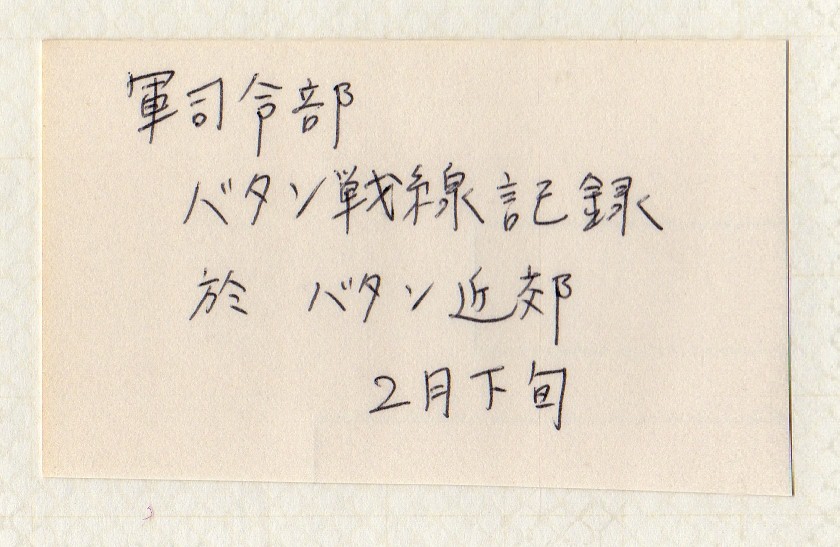 軍司令部
バタン戦線記録
於 バタン近郊
2月下旬